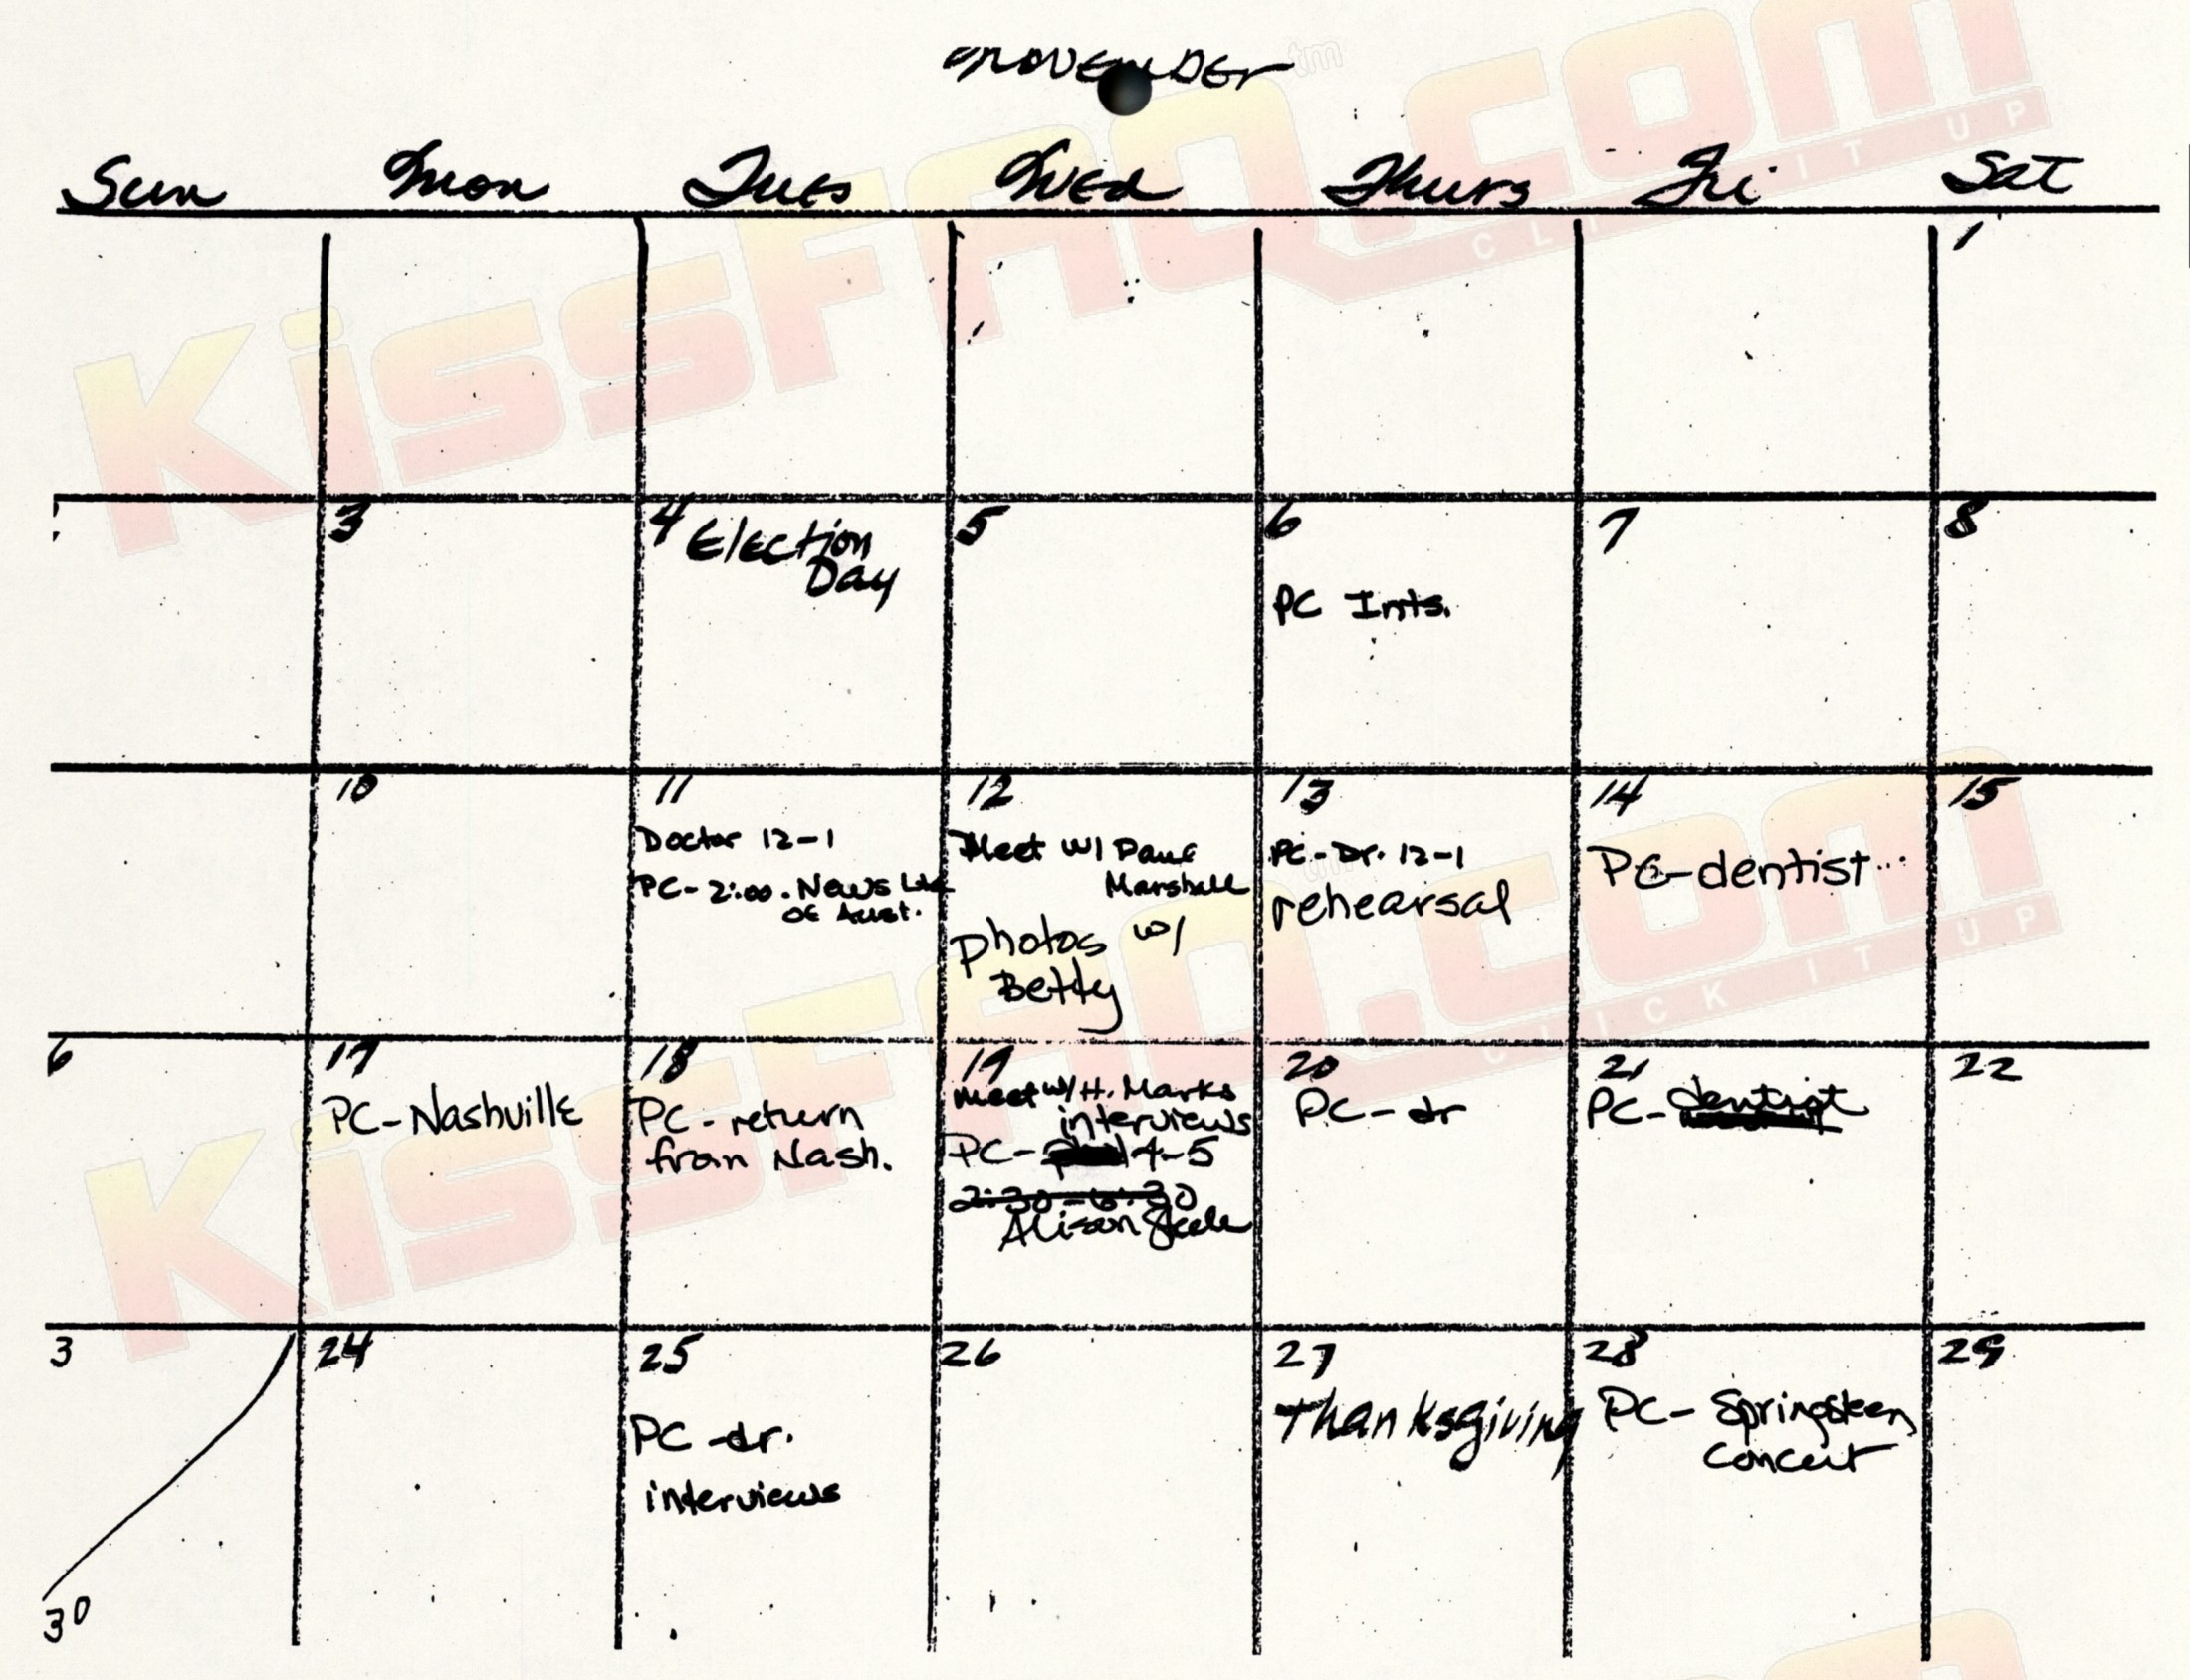 November
Sun Mon Tues Wed Thurs Fri Sat
1
3 4 Election Day 5 6 7 8
PC Ints.
10 11 12 13 14 15
Doctor 12-1
PC-2:00. News Ltd
of Aust.
Meet w/ Paul
Marshall
photos w/
Betty
PC-Dr. 12-1
rehearsal
PC-dentist...
6 17 18 19 20 21 22
PC-Nashville
PC-return
from Nash.
meet w/ H. Marks
interviews
PC- 4-5
2:30-6:30
Alison Steele
PC-dr
PC-dentist
3 24 25 26 27 28 29
PC-dr.
interviews
Thanksgiving
PC-Springsteen
concert
30
KissFAQ.com™
CLICK IT UP
KissFAQ.com™
CLICK IT UP